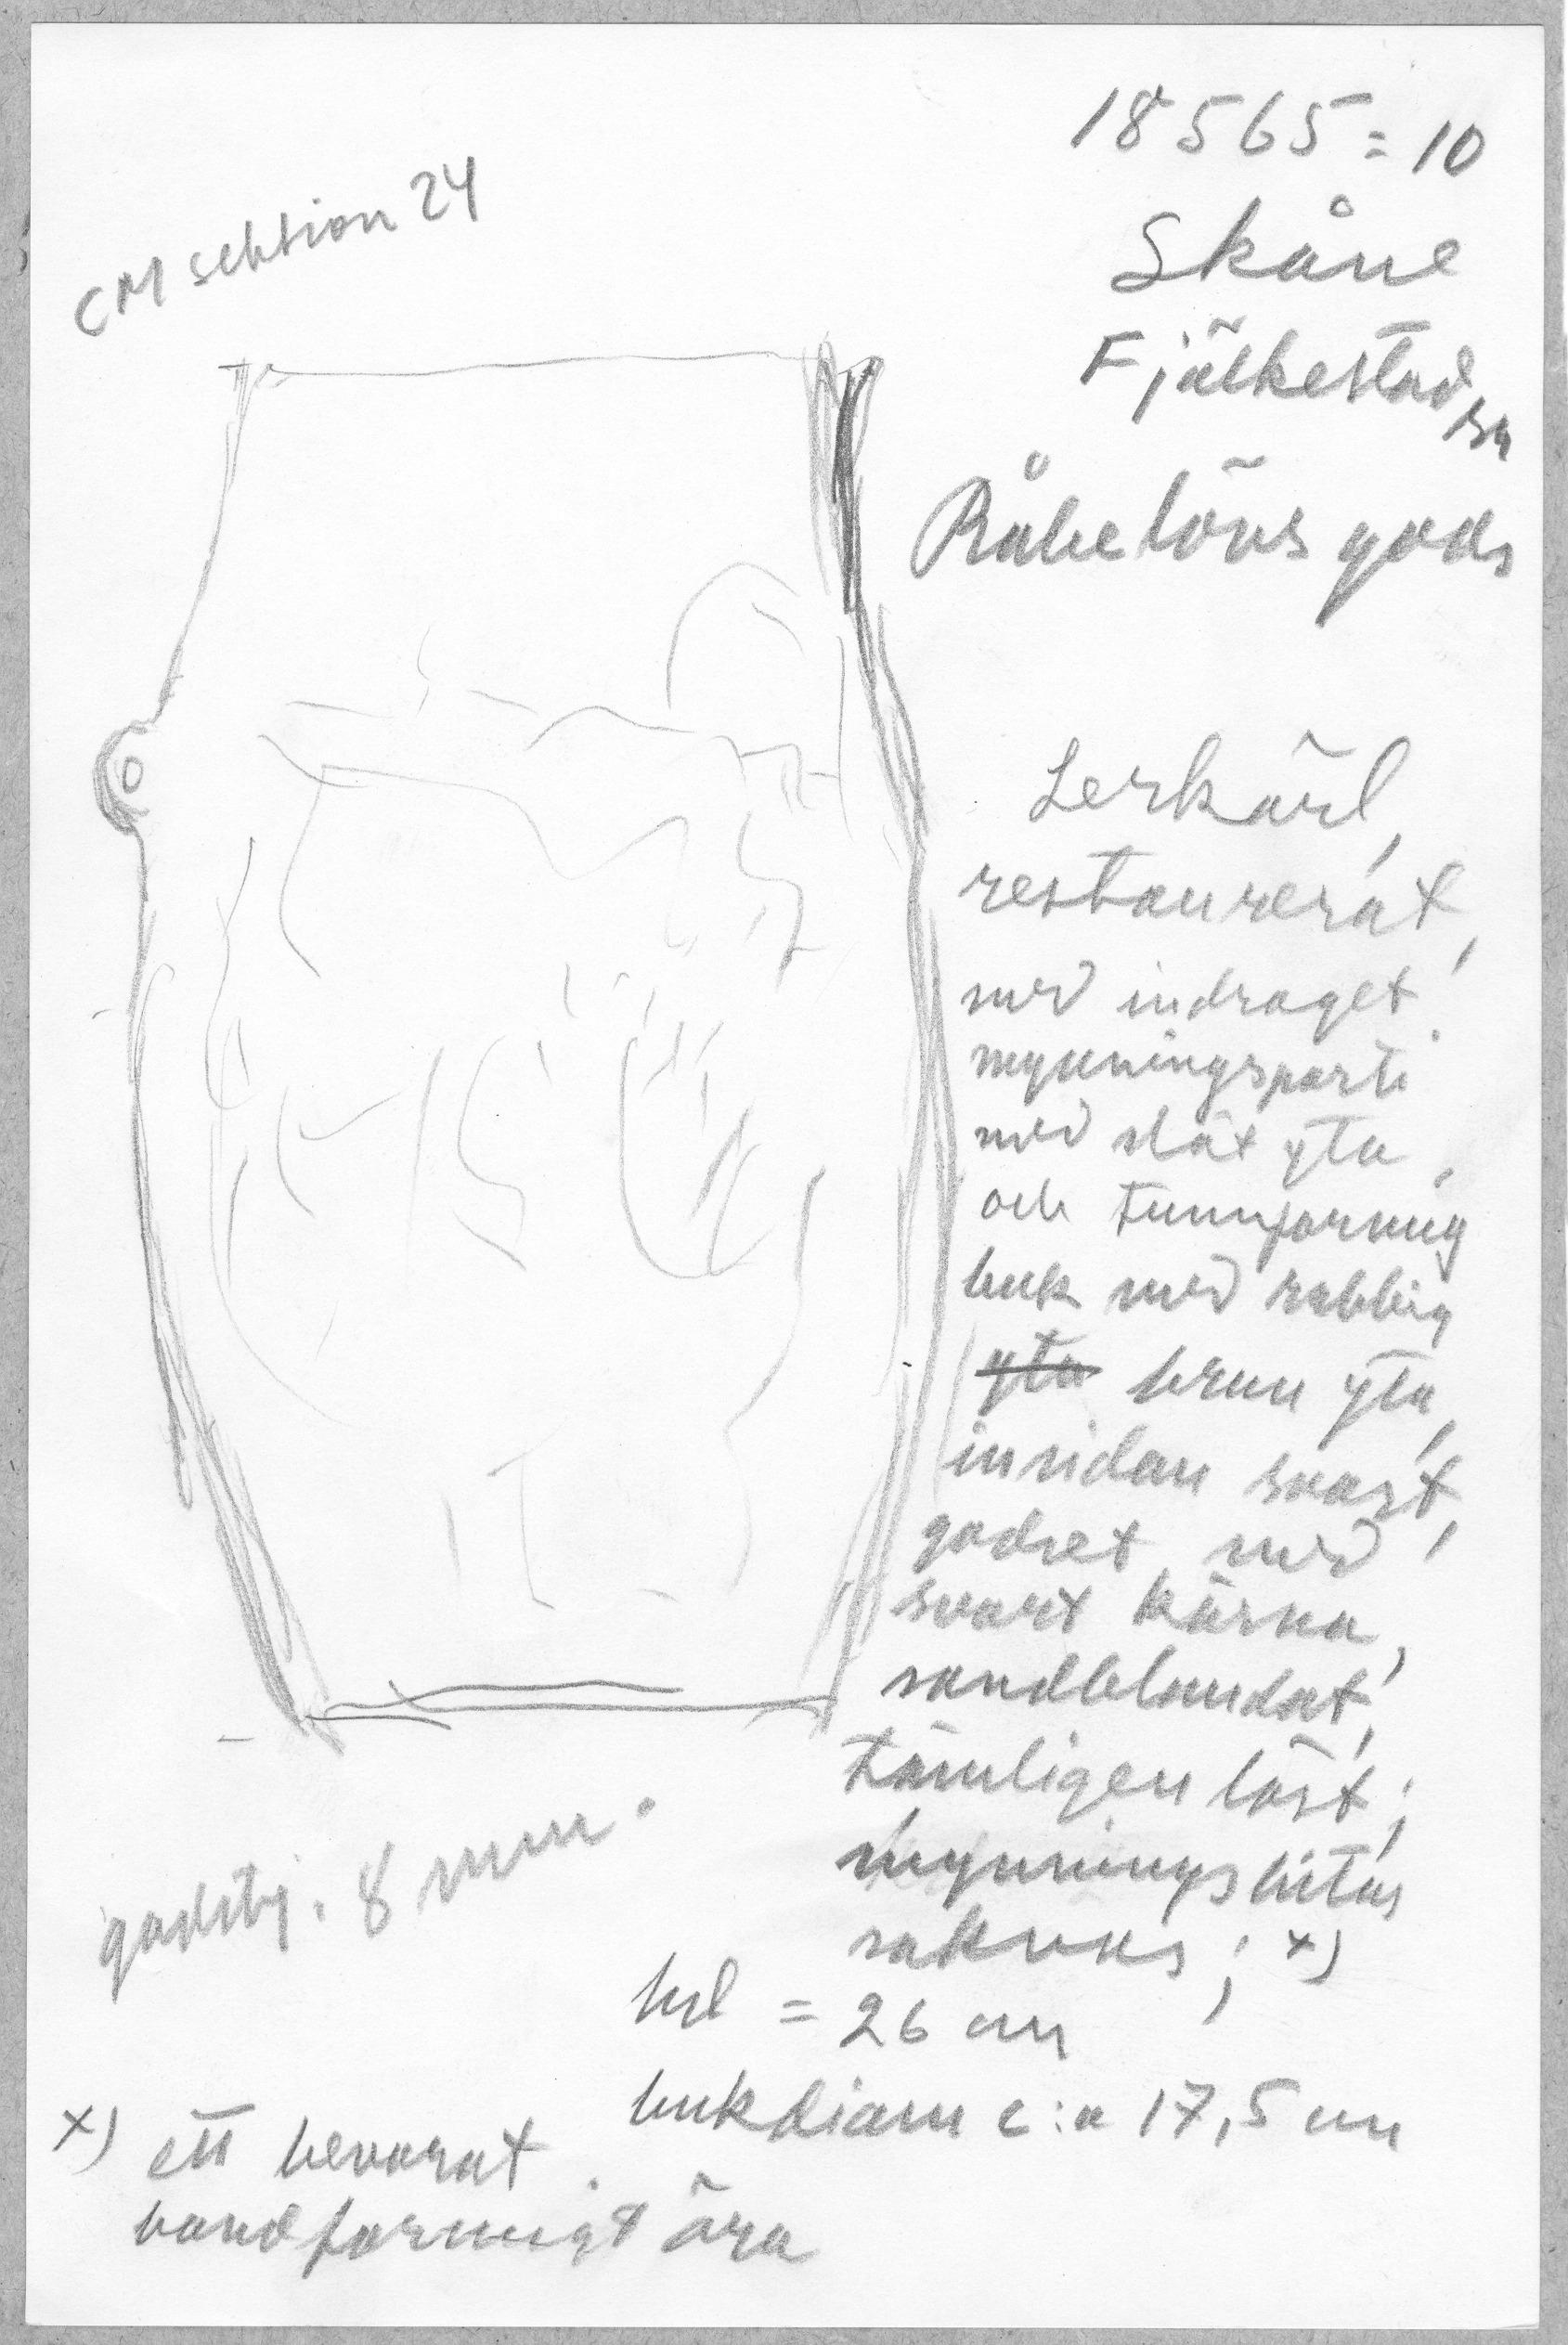 CM sektion 24
18565:10
Skåne
Fjälkestad sn
Råbelövs gods
Lerkärl,
restaurerat,
med indraget
mynningsparti
med slät yta,
och tunnformig
buk med rabbig
yta brun yta,
insidan svart,
godset med
svart kärna,
sandblandat,
tämligen löst;
mynningsbitar
saknas; x)
höjd = 26 cm
bukdiam c:a 17,5 cm
godstj. 8 mm.
x) ett bevarat
bandformigt öra